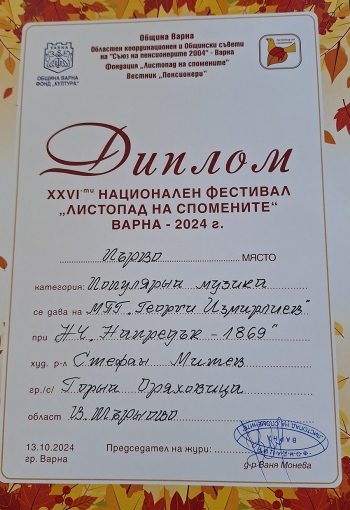 Община Варна
Областен координационен и Общински съвети
на "Съюз на пенсионерите 2004" - Варна
Фондация „Листопад на спомените"
Вестник „Пенсионери"
ВАРНА
ОБЩИНА ВАРНА
ФОНД „КУЛТУРА"
Диплом
XXVI-ти НАЦИОНАЛЕН ФЕСТИВАЛ
„ЛИСТОПАД НА СПОМЕНИТЕ"
ВАРНА - 2024 г.
Първо МЯСТО
категория: Популярна музика
се дава на МПГ „Георги Измирлиев"
при Н.Ч. „Напредък - 1869"
худ. р-л Стефан Митев
гр./с/ Горна Оряховица
област В. Търново
13.10.2024 Председател на жури:
гр. Варна д-р Ваня Монева
ФОНДАЦИЯ
ЛИСТОПАД НА СПОМЕНИТЕ
ВАРНА